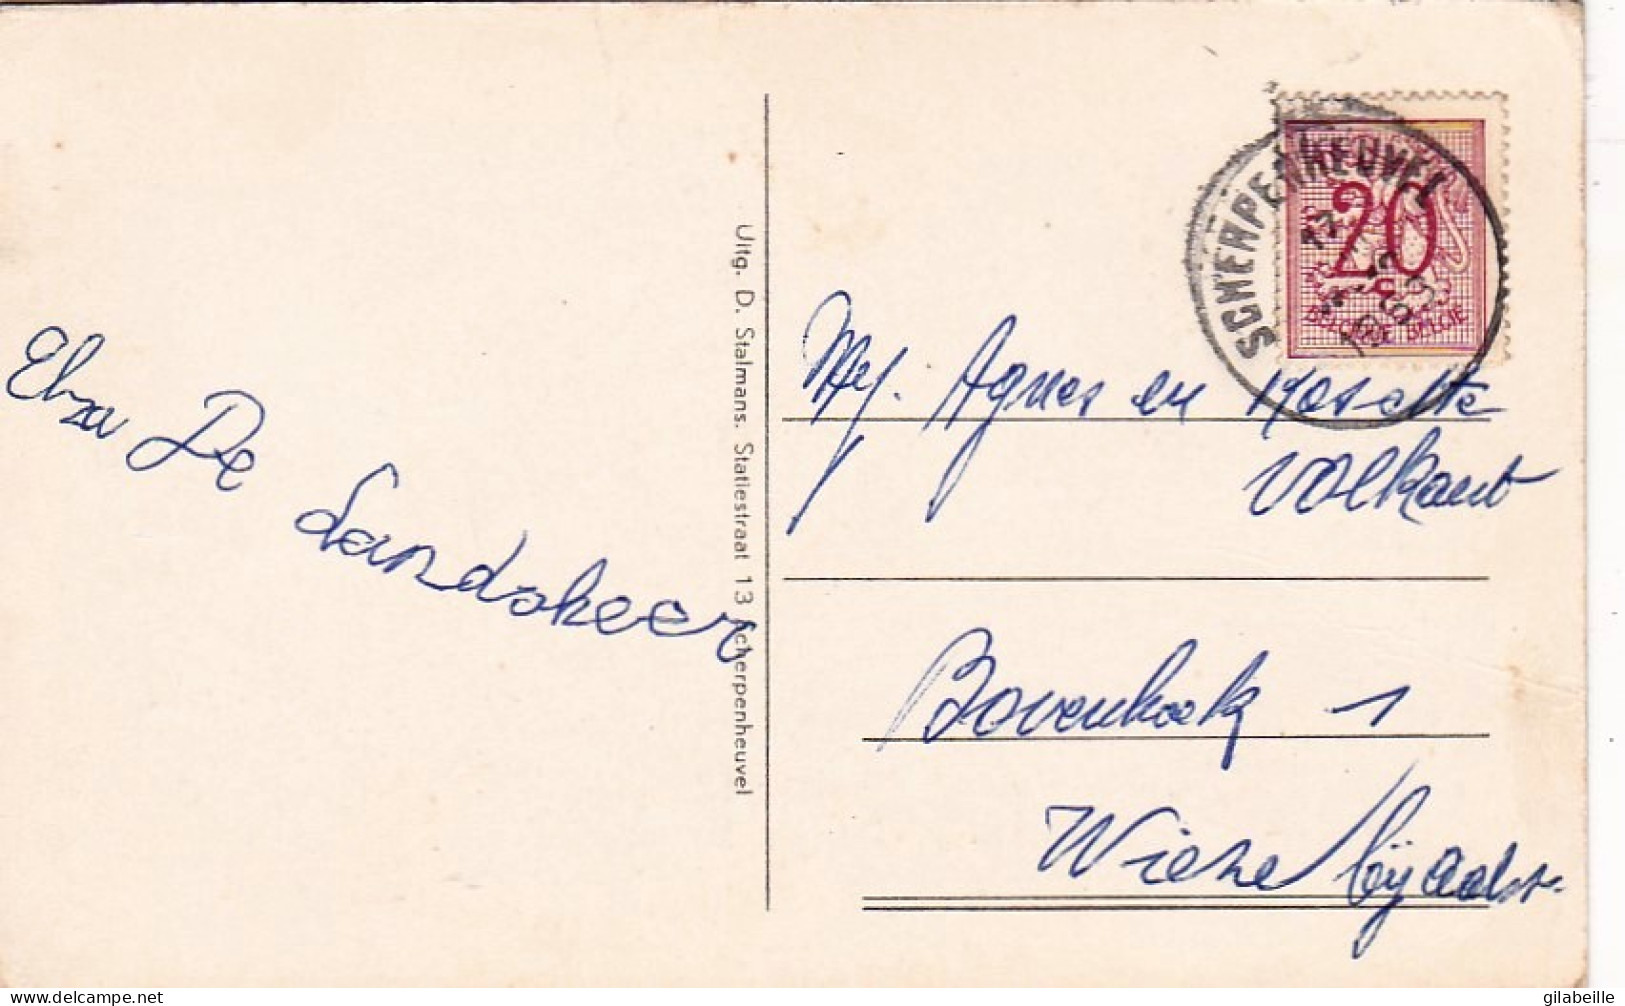 Elza De Landsheer
Uitg. D. Stalmans. Statiestraat 13 Scherpenheuvel
SCHERPENHEUVEL
17
1963
20
BELGIQUE BELGIE
Mej. Agnes en
Volkaert
Bovenhoek 1
Wieze bij Aalst.
delcampe.net
gilabeille